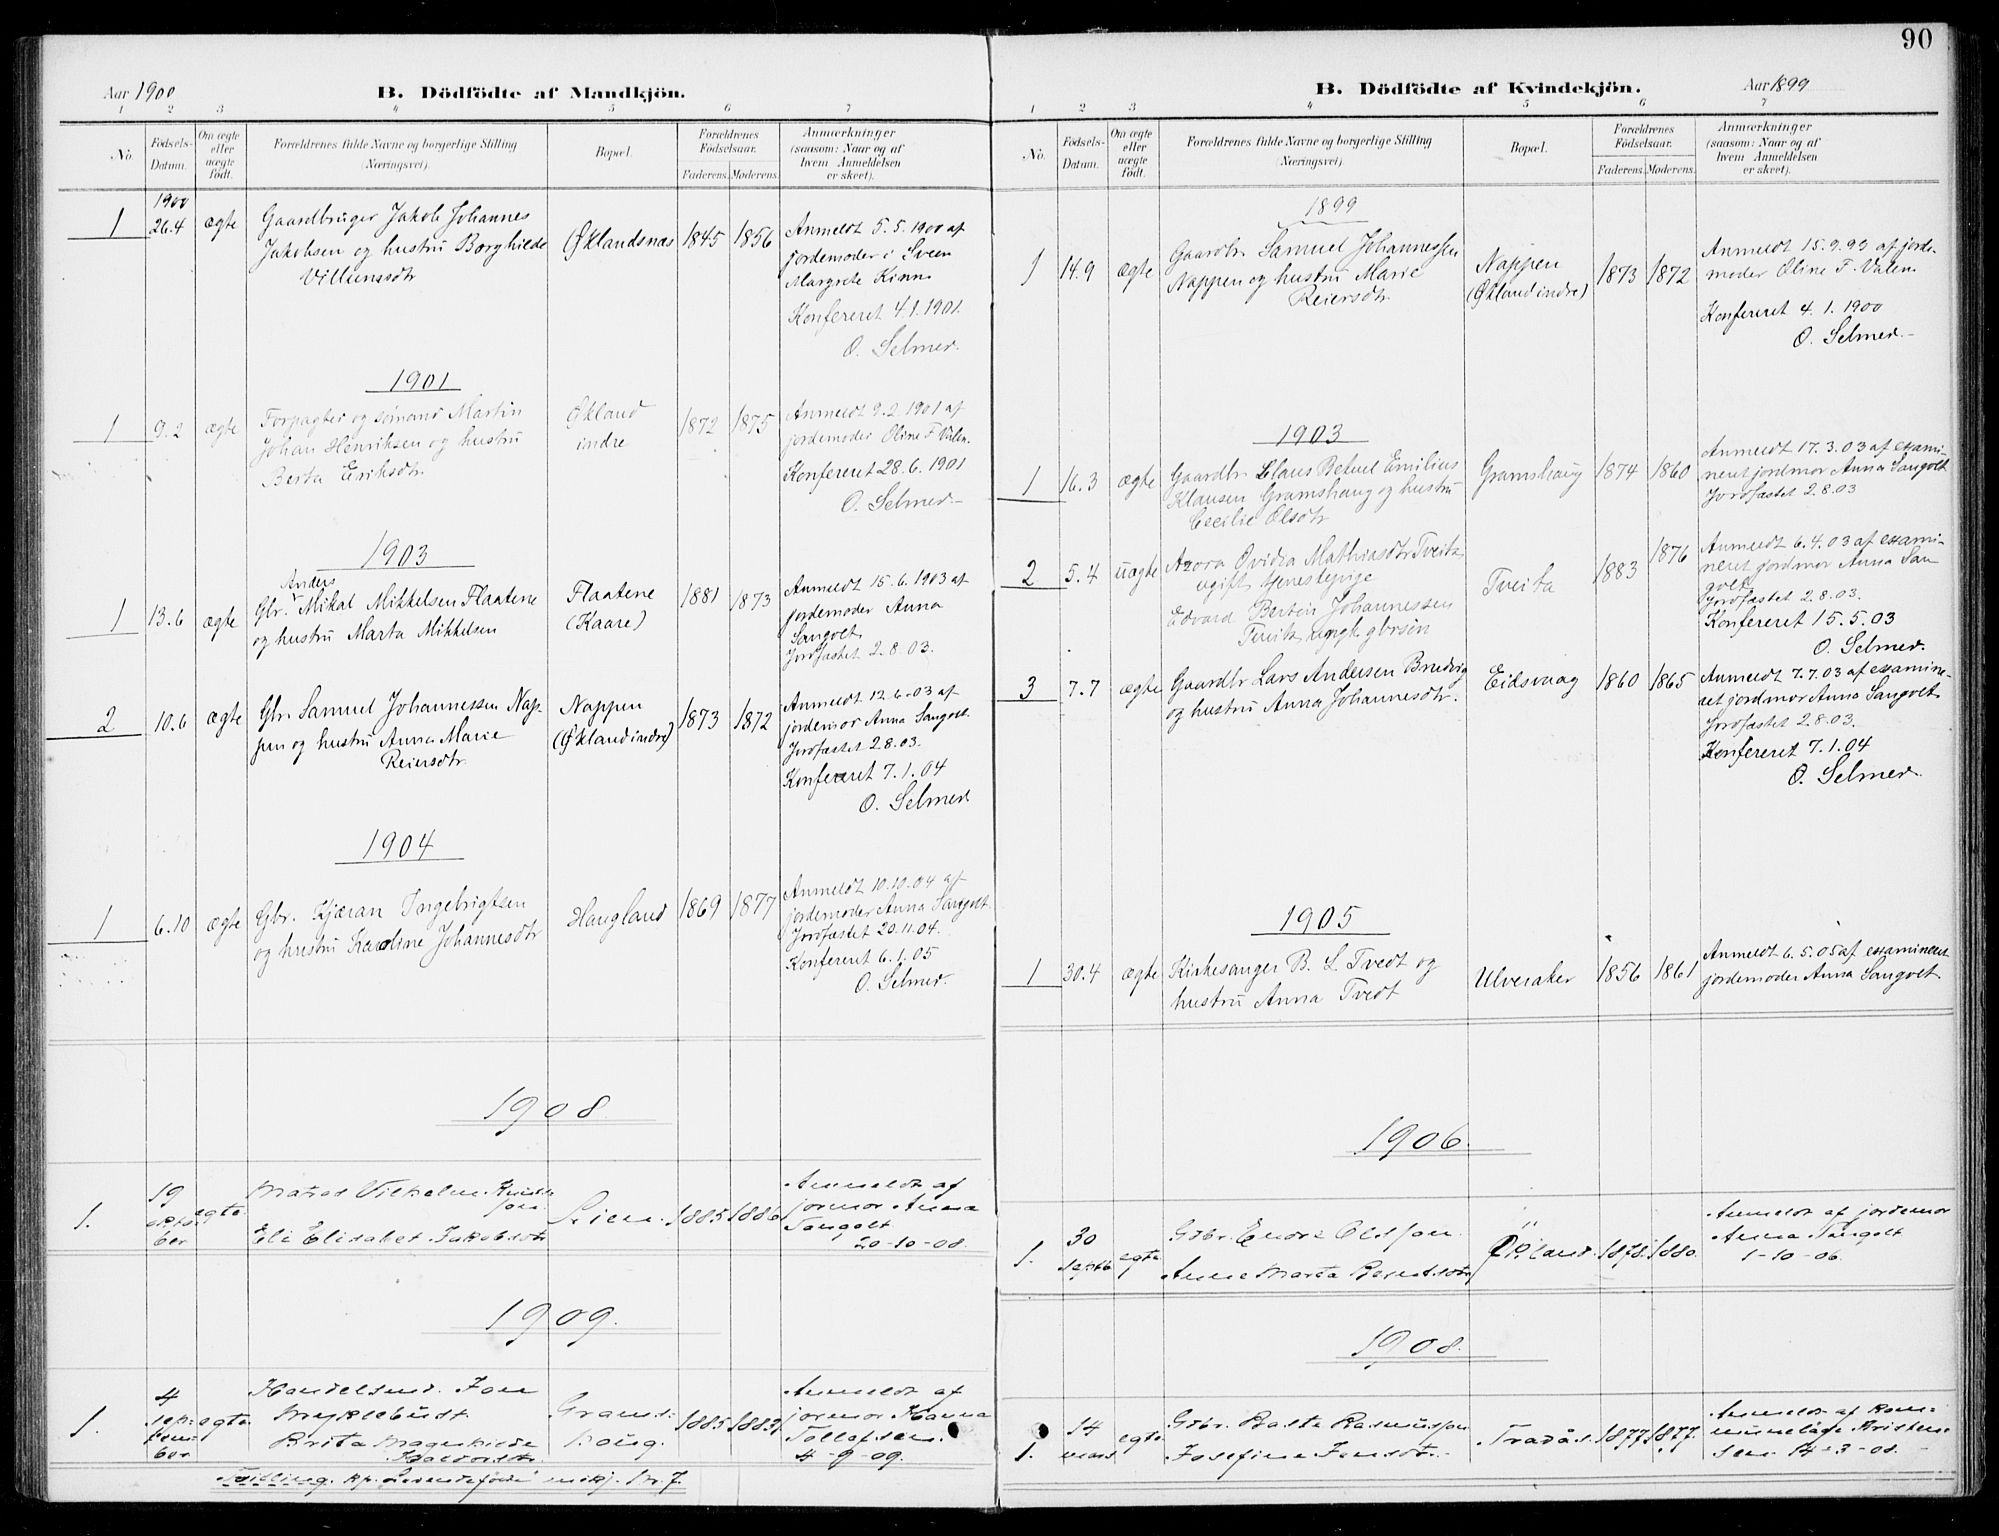 90
Aar 1900
B. Dödfödte af Mandkjön.
1 2 3 4 5 6 7
No.
Födsels-
Datum.
Om ægte
eller
uægte
födt.
Forældrenes fulde Navne og borgerlige Stilling
(Næringsvei).
Bopæl.
Forældrenes
Födselsaar.
Faderens. Moderens.
Anmærkninger
(saasom: Naar og af
hvem Anmeldelsen
er skeet).
1900
1 26.4 ægte
Gaardbruger Jakob Johannes
Jakobsen og hustru Borghilde
Villumsdtr
Øklandsnæs 1845 1856
Anmeldt 5.5.1900 af
jordemoder i Sveen
Margrete Kinn
Konfereret 4.1.1901.
O. Selmer.
1901
1 9.2 ægte
Forpagter og sömand Martin
Johan Henriksen og hustru
Berta Eriksdtr
Økland
indre
1872 1875
Anmeldt 9.2.1901 af
jordemoder Oline F. Valen.
Konfereret 28.6.1901
O. Selmer.
1903
1 13.6 ægte
Anders
Gbr. Mikal Mikkelsen Flaatene
og hustru Marta Mikkelsen
Flaatene
(Kaare)
1881 1873
Anmeldt 15.6.1903 af
jordemoder Anna
Sangolt
Jordfæstet 2.8.03.
2 10.6 ægte
Gbr. Samuel Johannessen Nap-
pen og hustru Anna Marie
Reiersdtr
Nappen
(Økland indre)
1873 1872
Anmeldt 12.6.03 af
jordemor Anna Sangolt.
Jordfæstet 2.8.03.
Konfereret 7.1.04
O. Selmer
1904
1 6.10 ægte
Gbr. Kjæran Ingebrigtsen
og hustru Karoline Johannesdtr
Haugland 1869 1877
Anmeldt 10.10.04 af
jordemoder Anna Sangolt.
Jordfæstet 20.11.04.
Konfereret 6.1.05
O. Selmer.
1908.
1.
19
okto
ber
egte.
Vilhelm Knuds
sen.
Eli Elisabet Jakobsdtr
1885 1886
Anmeldt af
jormor Anna
Sangolt
20-10-08.
1909.
1.
4
sep-
tem-
ber
egte
Handelsmd. Jon
Myklebust
Brita Magnhilde
Haldorsdtr
Grams-
haug.
1885 1883
Anmeldt af
jormor Hanna
Tollefsen.
4-9-09.
Tvilling. kp. Levendefødte mkj. nr 7.
B. Dödfödte af Kvindekjön.
Aar 1899
1 2 3 4 5 6 7
No.
Födsels-
Datum.
Om ægte
eller
uægte
födt.
Forældrenes fulde Navne og borgerlige Stilling
(Næringsvei).
Bopæl.
Forældrenes
Födselsaar.
Faderens. Moderens.
Anmærkninger
(saasom: Naar og af
hvem Anmeldelsen
er skeet).
1899
1 14.9 ægte
Gaardbr. Samuel Johannessen
Nappen og hustru Marie
Reiersdtr
Nappen
(Økland indre)
1873 1872
Anmeldt 15.9.99 af jorde-
moder Oline F. Valen.
Konfereret 4.1.1900
O. Selmer.
1903
1 16.3 ægte
Gaardbr. Claus Betuel Emilius
Klausen Gramshaug og hustru
Cecilie Olsdtr
Gramshaug 1874 1860
Anmeldt 17.3.03 af exami-
neret jordmor Anna Sangolt
Jordfæstet 2.8.03
2 5.4 uægte
Azora Ovidia Mathiasdtr Tveita
ugift tjenestepige
Edvard Bertin Johannessen
Tveita ungk. gbrsön
Tveita 1883 1876
Anmeldt 6.4.03 af exami-
neret jordmor Anna San-
golt
Jordfæstet 2.8.03.
Konfereret 15.5.03
O. Selmer.
3 7.7 ægte
Gaardbr Lars Andersen Bredvig
og hustru Anna Johannesdtr.
Eidsvaag 1860 1865
Anmeldt 7.7.03 af examine-
ret jordmor Anna Sangolt
Jordfæstet 2.8.03.
Konfereret 7.1.04
O. Selmer.
1905
1 30.4 ægte
Kirkesanger B. L. Tvedt og
hustru Anna Tvedt
Ulveraker 1856 1861
Anmeldt 6.5.05 af examineret
jordemoder Anna Sangolt.
1906.
1.
30
septb.
egte
Gdbr. Endre Olsson
Anne Marta Berntsdtr
Økland. 1878. 1880.
Anmeldt af jordemor
Anna Sangolt
1-10-06.
1908.
1.
14
mars
egte
Gdbr. Rasmusson
Josefine Jensdtr.
Tradås. 1877. 1877.
Anmeldt af kom-
munelæge Kristen-
sen 14-3-08.